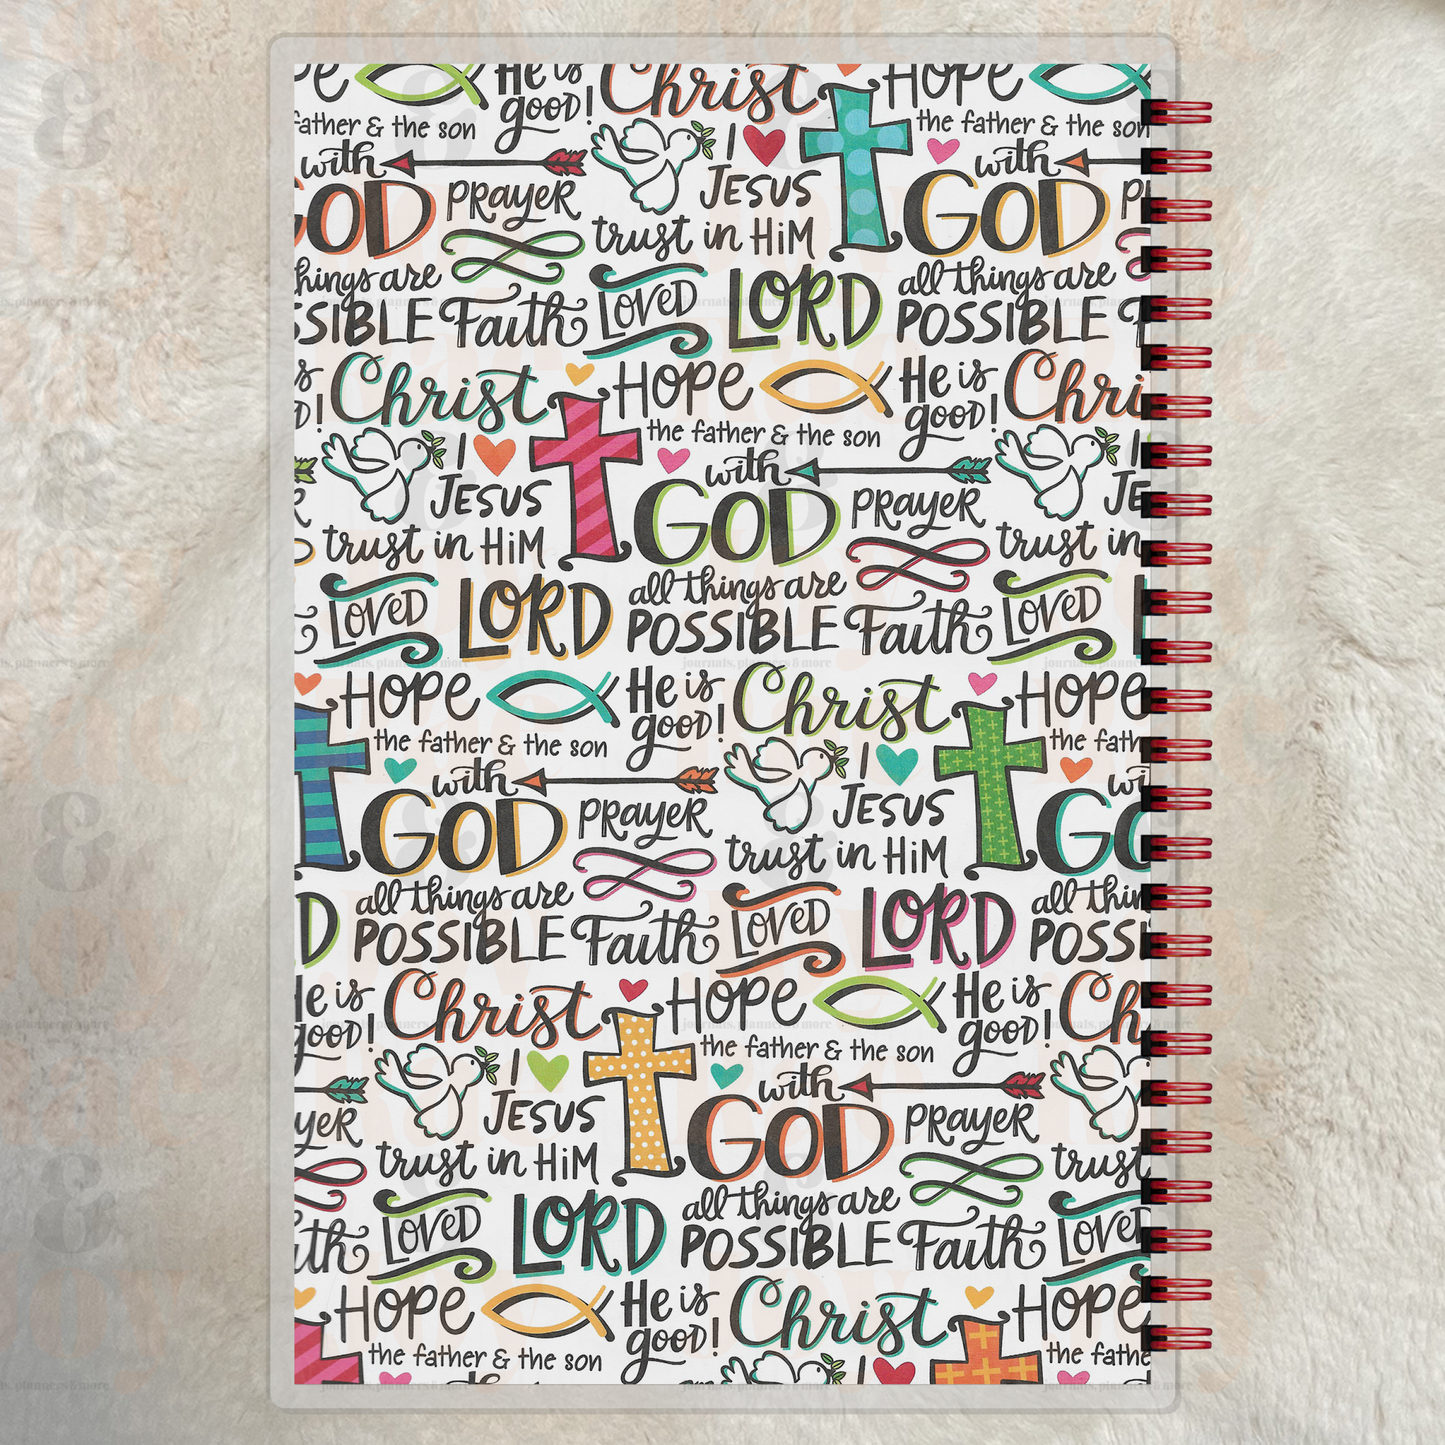 He is Christ HOPE
father & the son good! the father & the son
with I JESUS with
GOD PRAYER trust in HiM GOD
things are LOVED LORD all things are
Faith POSSIBLE
Christ HOPE He is
the father & the son good!
I JESUS with PRAYER
trust in HiM GOD trust in
LOVED LORD all things are LOVED
POSSIBLE Faith
HOPE He is Christ HOPE
the father & the son good! the
with I JESUS
GOD PRAYER trust in HiM
all things are LOVED LORD all
POSSIBLE Faith
is Christ HOPE He is
good! the father & the son good!
I JESUS with PRAYER
trust in HiM GOD trust
LOVED LORD all things are LOVED
POSSIBLE Faith
HOPE He is Christ HOPE
the father & the son good! the
I
journals, planners & more